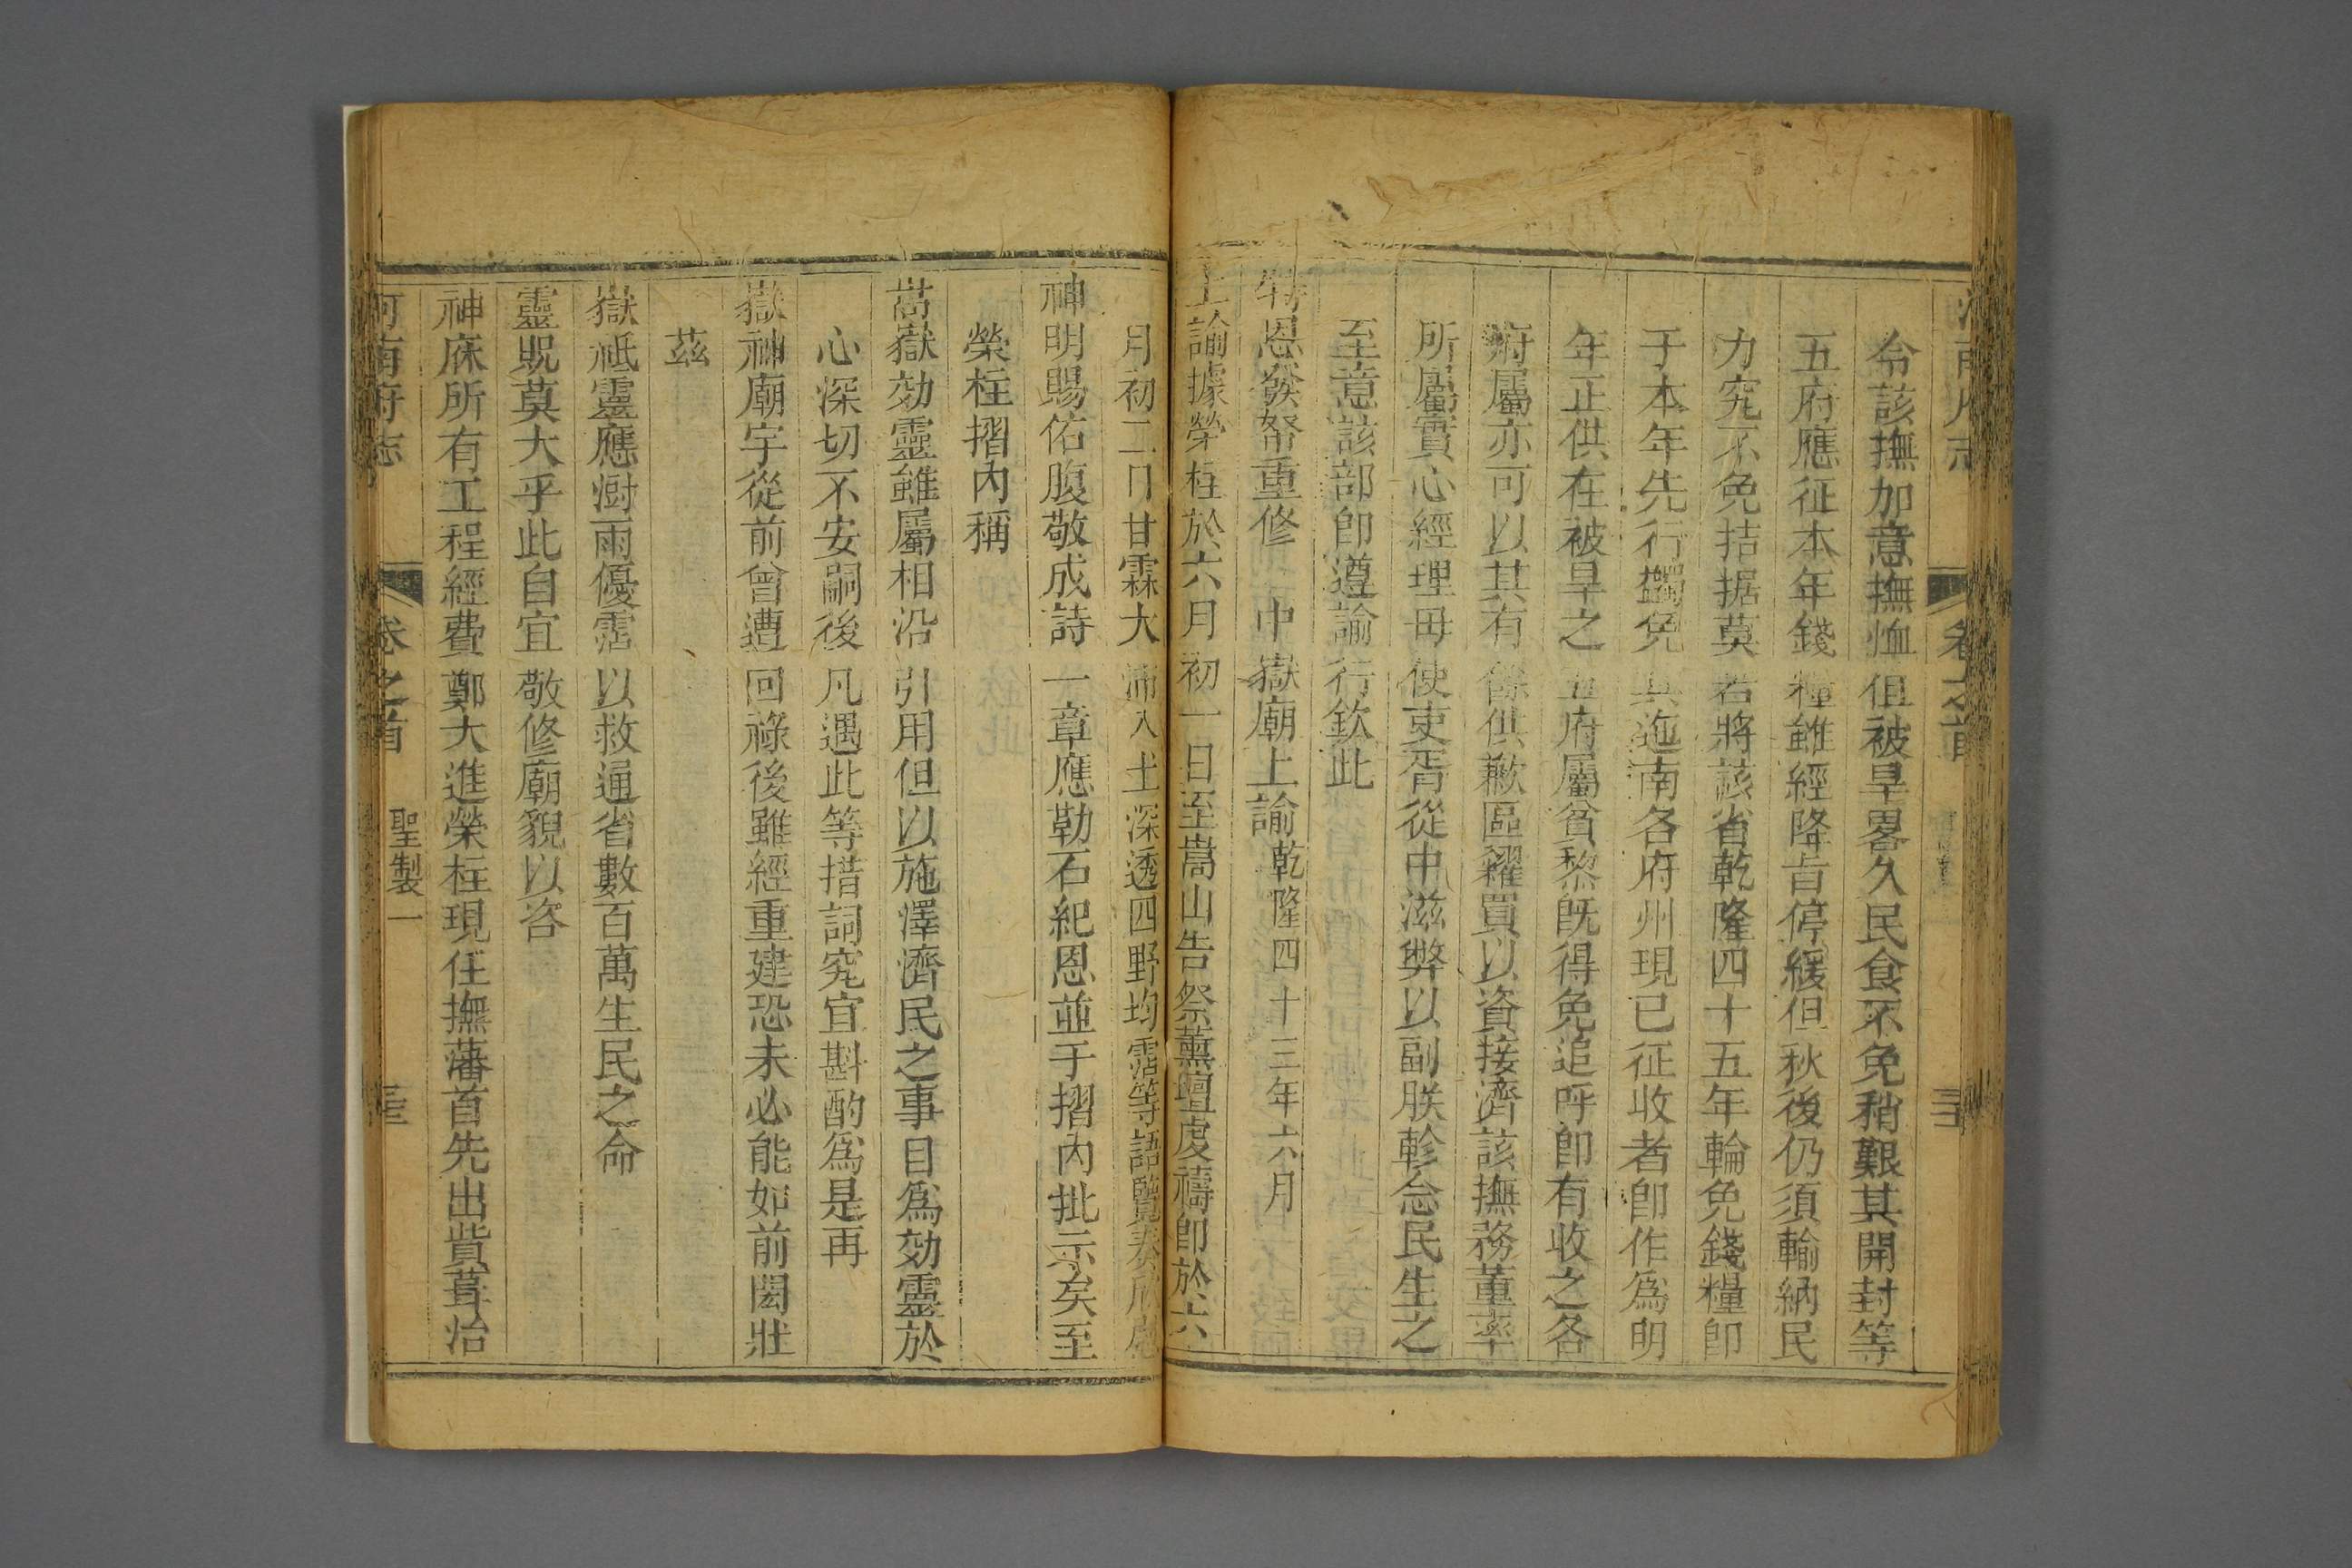 令該撫加意撫恤但被旱畧久民食不免稍艱其開封等
五府應征本年錢糧雖經降旨停緩但秋後仍須輸納民
力究不免拮据莫若將該省乾隆四十五年輪免錢糧即
于本年先行蠲免其迤南各府州現已征收者即作為明
年正供在被旱之五府屬貧黎既得免追呼即有收之各
府屬亦可以其有餘供歉區糴買以資接濟該撫務董率
所屬實心經理毋使吏胥從中滋弊以副朕軫念民生之
至意該部即遵諭行欽此
特恩發帑重修 中嶽廟上諭 乾隆四十三年六月
上諭據榮柱於六月初一日至嵩山告祭薰壇虔禱即於六
月初二日甘霖大沛入土深透四野均霑等語覽奏欣慰
神明賜佑腹敬成詩一章應勒石紀恩並于摺內批示矣至
榮柱摺內稱
嵩嶽効靈雖屬相沿引用但以施澤濟民之事目為効靈於
心深切不安嗣後凡遇此等措詞究宜斟酌為是再
嶽神廟宇從前曾遭回祿後雖經重建恐未必能如前閎壯
茲
嶽祗靈應澍雨優霑以救通省數百萬生民之命
靈貺莫大乎此自宜敬修廟貌以答
神庥所有工程經費鄭大進榮柱現任撫藩首先出貲葺治
河南府志 卷之首 聖製一